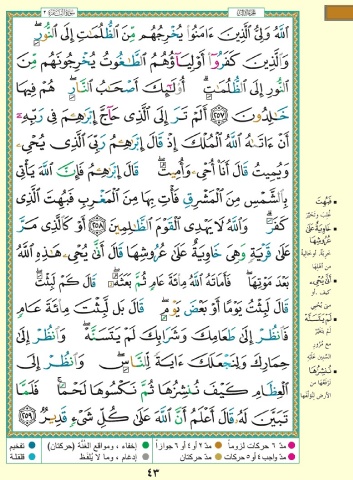 سُورَةُ البَقَرَةِ ٢
الجُزْءُ الثَّالِثُ
ٱللَّهُ وَلِيُّ ٱلَّذِينَ ءَامَنُوا۟ يُخْرِجُهُم مِّنَ ٱلظُّلُمَٰتِ إِلَى ٱلنُّورِۖ
وَٱلَّذِينَ كَفَرُوٓا۟ أَوْلِيَآؤُهُمُ ٱلطَّٰغُوتُ يُخْرِجُونَهُم مِّنَ
ٱلنُّورِ إِلَى ٱلظُّلُمَٰتِۗ أُو۟لَٰٓئِكَ أَصْحَٰبُ ٱلنَّارِۖ هُمْ فِيهَا
خَٰلِدُونَ ٢٥٧ أَلَمْ تَرَ إِلَى ٱلَّذِى حَآجَّ إِبْرَٰهِۦمَ فِى رَبِّهِۦٓ
أَنْ ءَاتَىٰهُ ٱللَّهُ ٱلْمُلْكَ إِذْ قَالَ إِبْرَٰهِۦمُ رَبِّىَ ٱلَّذِى يُحْىِۦ
وَيُمِيتُ قَالَ أَنَا۠ أُحْىِۦ وَأُمِيتُۖ قَالَ إِبْرَٰهِۦمُ فَإِنَّ ٱللَّهَ يَأْتِى
بِٱلشَّمْسِ مِنَ ٱلْمَشْرِقِ فَأْتِ بِهَا مِنَ ٱلْمَغْرِبِ فَبُهِتَ ٱلَّذِى
كَفَرَۗ وَٱللَّهُ لَا يَهْدِى ٱلْقَوْمَ ٱلظَّٰلِمِينَ ٢٥٨ أَوْ كَٱلَّذِى مَرَّ
عَلَىٰ قَرْيَةٍ وَهِىَ خَاوِيَةٌ عَلَىٰ عُرُوشِهَا قَالَ أَنَّىٰ يُحْىِۦ هَٰذِهِ ٱللَّهُ
بَعْدَ مَوْتِهَاۖ فَأَمَاتَهُ ٱللَّهُ مِا۟ئَةَ عَامٍ ثُمَّ بَعَثَهُۥۖ قَالَ كَمْ لَبِثْتَۖ
قَالَ لَبِثْتُ يَوْمًا أَوْ بَعْضَ يَوْمٍۖ قَالَ بَل لَّبِثْتَ مِا۟ئَةَ عَامٍ
فَٱنظُرْ إِلَىٰ طَعَامِكَ وَشَرَابِكَ لَمْ يَتَسَنَّهْۖ وَٱنظُرْ إِلَىٰ
حِمَارِكَ وَلِنَجْعَلَكَ ءَايَةً لِّلنَّاسِۖ وَٱنظُرْ إِلَى
ٱلْعِظَامِ كَيْفَ نُنشِزُهَا ثُمَّ نَكْسُوهَا لَحْمًاۚ فَلَمَّا
تَبَيَّنَ لَهُۥ قَالَ أَعْلَمُ أَنَّ ٱللَّهَ عَلَىٰ كُلِّ شَىْءٍ قَدِيرٌ ٢٥٩
فَبُهِتَ
خَاوِيَةٌ عَلَىٰ
عُرُوشِهَا
أَنَّىٰ يُحْىِۦ
لَمْ يَتَسَنَّهْ
نُنشِزُهَا
مدّ ٦ حركات لزوماً
مدّ ٢ أو ٤ أو ٦ جوازاً
إخفاء، ومواقع الغُنَّة (حركتان)
تفخيم
مدّ واجب ٤ أو ٥ حركات
مدّ حركتان
إدغام، وما لا يُلفظ
قلقلة
٤٣